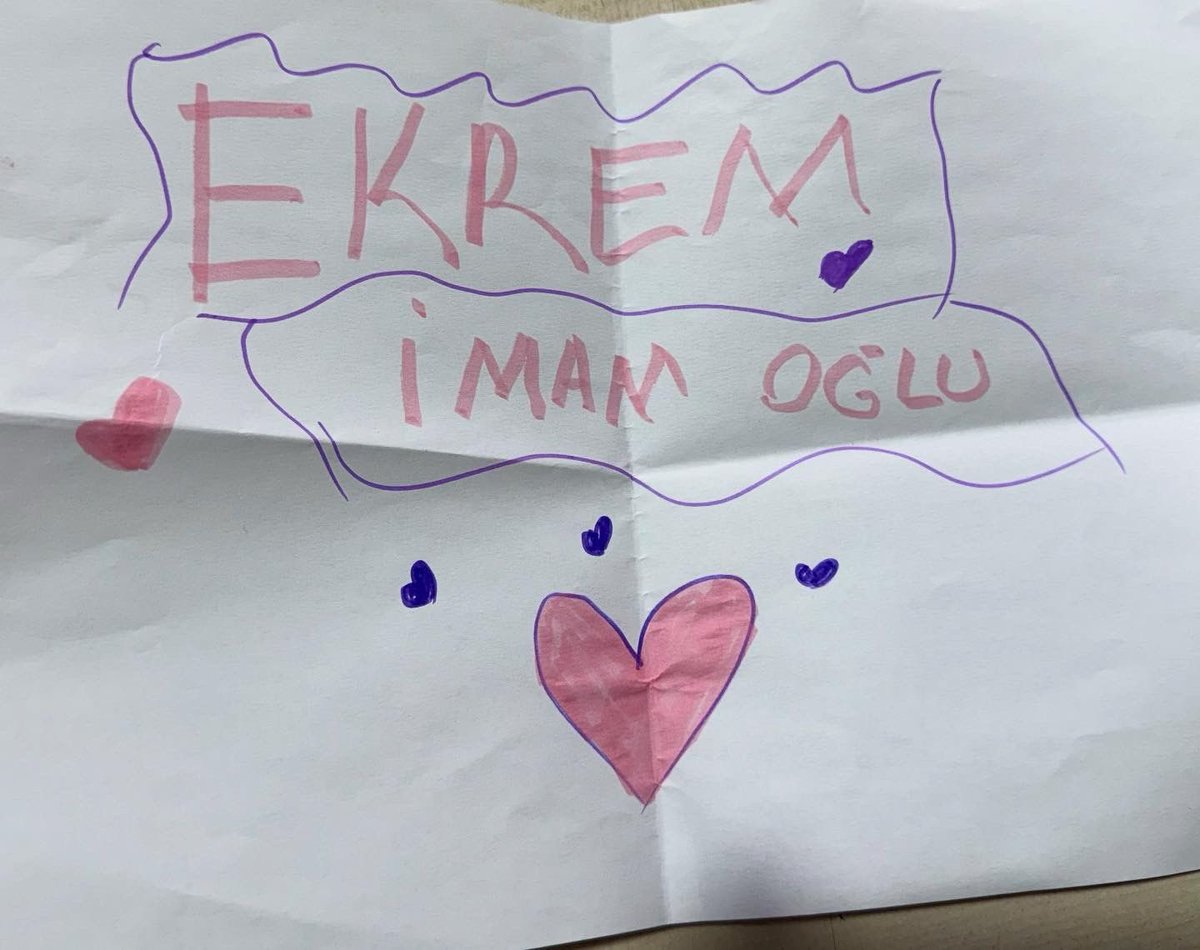 EKREM
İMAM OĞLU